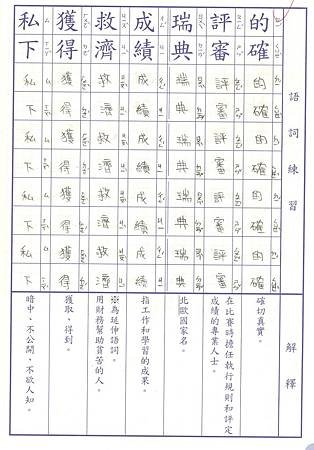 語詞練習
解釋
的確
的確的確的確的確
確切真實。
評審
評審評審評審評審
在比賽時擔任執行規則和評定
成績的專業人士。
瑞典
瑞典瑞典瑞典瑞典
北歐國家名。
成績
成績成績成績成績
指工作和學習的成果。
救濟
救濟救濟救濟救濟
※為延伸語詞。
用財務幫助貧苦的人。
獲得
獲得獲得獲得獲得
獲取、得到。
私下
私下私下私下私下
暗中、不公開、不欲人知。